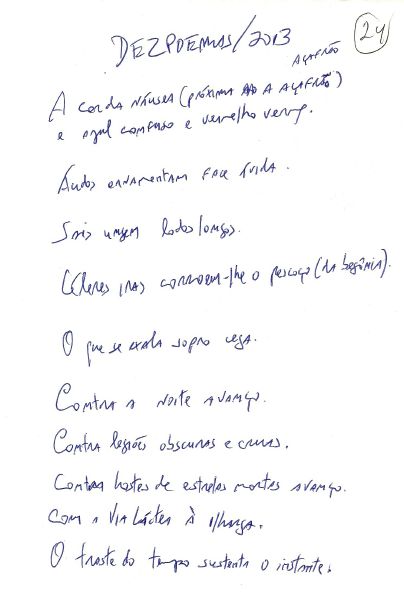 DEZPOEMAS/2013
24
AÇAFRÃO
A cor da náusea (próxima A AÇAFRÃO)
e azul confuso e vermelho verme.
Áudos ornamentam face ávida.
Sais ungem lodos longos.
Céleres iras corroem-lhe o pescoço (da begônia).
O que se exala sopro cega.
Contra a noite avanço.
Contra legiões obscuras e cruas.
Contra hostes de estrelas mortas avanço.
Com a Via Láctea à ilharga.
O traste do tempo sustenta o instante.